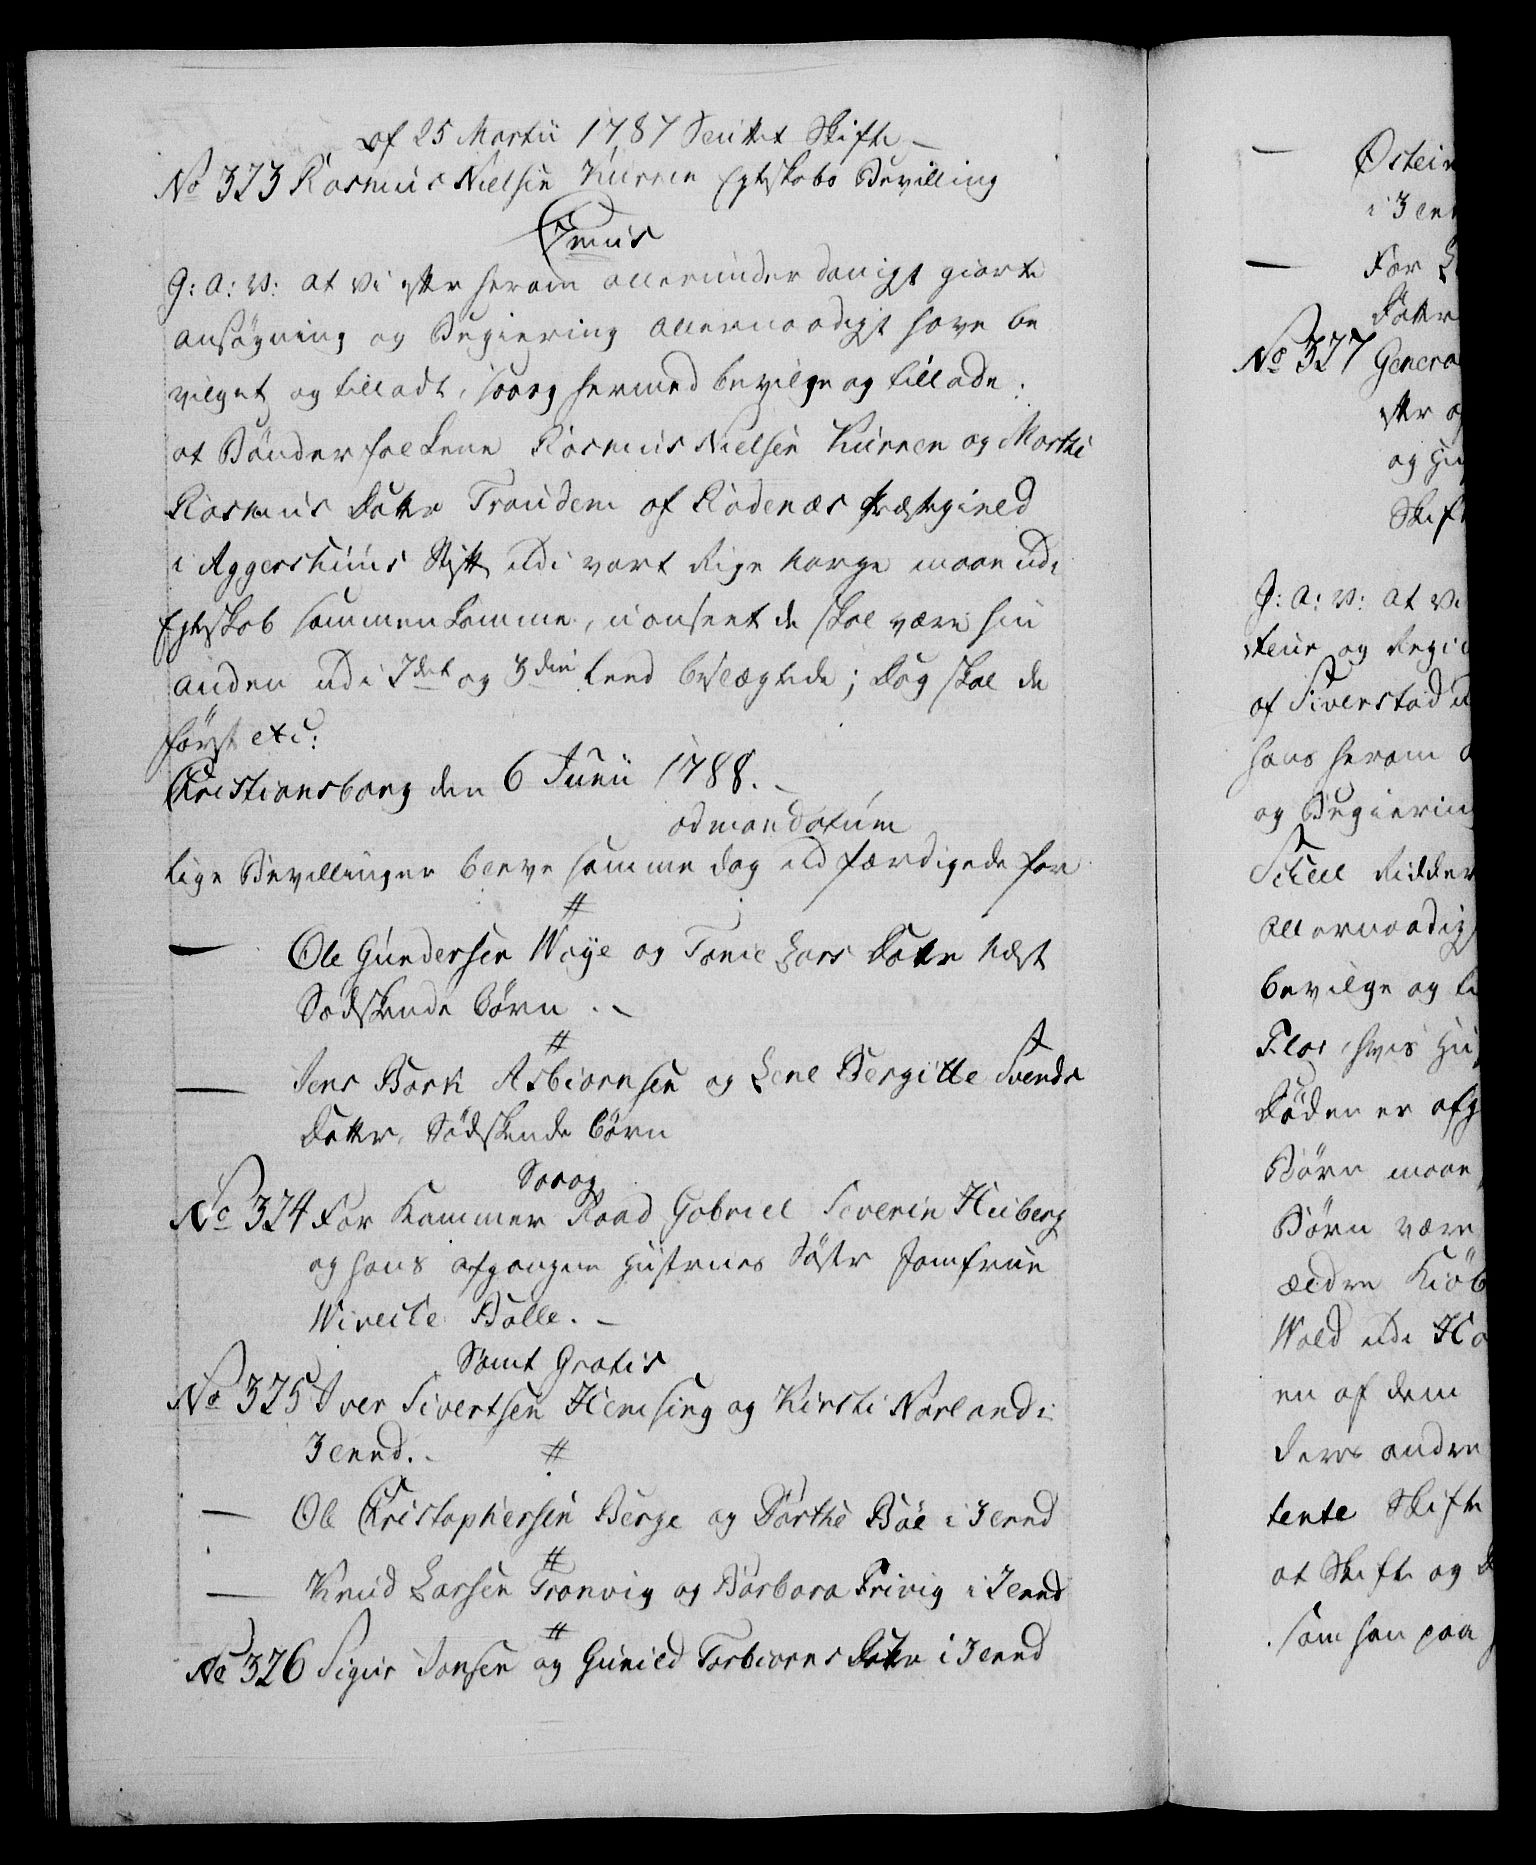 af 25 Martii 1787 Sluttet Skifte –
No 323 Rasmus Nielsen Kurren Egteskabs Bevilling
Gratis
G: A: V: at vi efter herom allerunderdanigst giorte
ansøgning og Begiering allernaadigst have be
vilget og tilladt, saa og hermed bevilge og tillade:
at Bønderfolkene Rasmus Nielsen Kurren og Marthe
Rasmus Datter Trandem af Rødenæs Præstegield
i Aggershuus Stift udi vort Rige Norge maae udi
Egteskab sammenkomme, uanseet de skal være hin
anden udi 2det og 3die Leed beslægtede; dog skal de
først etc:
Christiansborg den 6 Junii 1788. –
ad mandatum
Lige Bevillinger bleve samme dag udfærdigede for
#
— Ole Gundersen Weye og Tonie Lars Datter næst
Sødskende børn. –
#
— Jens Bork Asbiørnsen og Lene Bergitte Svends
Datter, Sødskende børn
Sorog
No 324 For Kammer Raad Gabriel Severin Heiberg
og hans afgangne Hustrues Søster Jomfrue
Wivecke Balle. –
Samt Gratis
No 325 Iver Sivertsen Hemsing og Kirsti Norland i
3 Leed. – #
— Ole Christophersen Berge og Dorthe Bøe i 3 Leed
#
— Knud Larsen Tronvig og Barbara Frivig i 2 Leed
#
No 326 Sigur Jonsen og Gunild Torbiørns Datter i 3 Leed
— Østein
i 3 Lee
— For
Datter
No 327 Genera
efter
og Hu
Skif
G: A: V: at vi
steur og Regi
af Siverstad
hans herom
og Begiering
Scheel Ridder
Allernaadigst
bevilge og ti
Flor, hvis Hu
Døden er afg
Børn maae
Børn være
ældre Kiøb
Wold udi Ho
en af dem
deres andre
tente Skifte
at Skifte og
som han paa